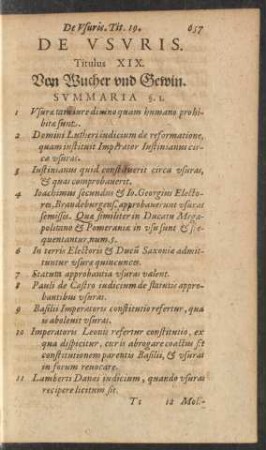 De Vsuris. Tit. 19. 657
DE VSVRIS.
Titulus XIX.
Von Wucher vnd Gewin.
SVMMARIA §. 1.
1 Vsuræ tam iure divino quam humano prohi-
bitæ sunt.
2 Domini Lutheri iudicium de reformatione,
quam instituit Imperator Iustinianus cir-
ca vsuras.
3 Iustinianus quid constituerit circa vsuras,
& quas comprobaverit.
4 Ioachimus secundus & Io. Georgius Electo-
res, Brandeburgens. approbaverunt vsuras
semissis. Qua similiter in Ducatu Megapo-
politano & Pomerania in vsu sunt &
sequentiantur, num. 5.
6 In terris Electoris & Ducũ Saxoniæ admit-
tuntur vsuræ quincunces.
7 Statuta approbantia vsuras valent.
8 Pauli de Castro iudicium de statutis appro-
bantibus vsuras.
9 Basilii Imperatoris constitutio refertur, qua
is abolevit vsuras.
10 Imperatoris Leonis refertur constitutio, ex
qua dispicitur, cur is abrogare coactus sit
constitutionem parentis Basilii, & vsuras
in forum revocare.
11 Lamberti Danæi iudicium, quando vsuras
recipere licitum sit.
Tt 12 Mol-